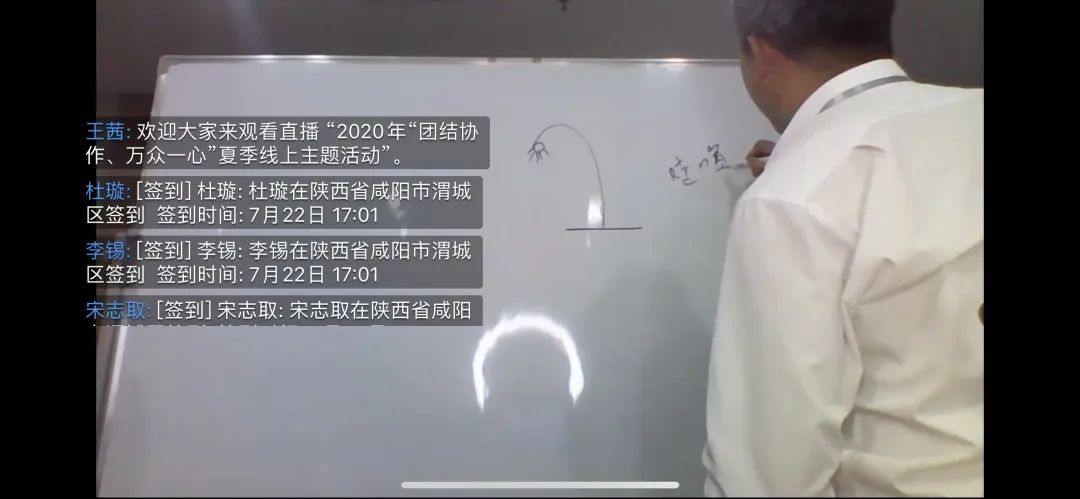 王茜: 欢迎大家来观看直播 “2020年“团结协
作、万众一心”夏季线上主题活动”。
杜璇: [签到] 杜璇: 杜璇在陕西省咸阳市渭城
区签到 签到时间: 7月22日 17:01
李锡: [签到] 李锡: 李锡在陕西省咸阳市渭城
区签到 签到时间: 7月22日 17:01
宋志取: [签到] 宋志取: 宋志取在陕西省咸阳